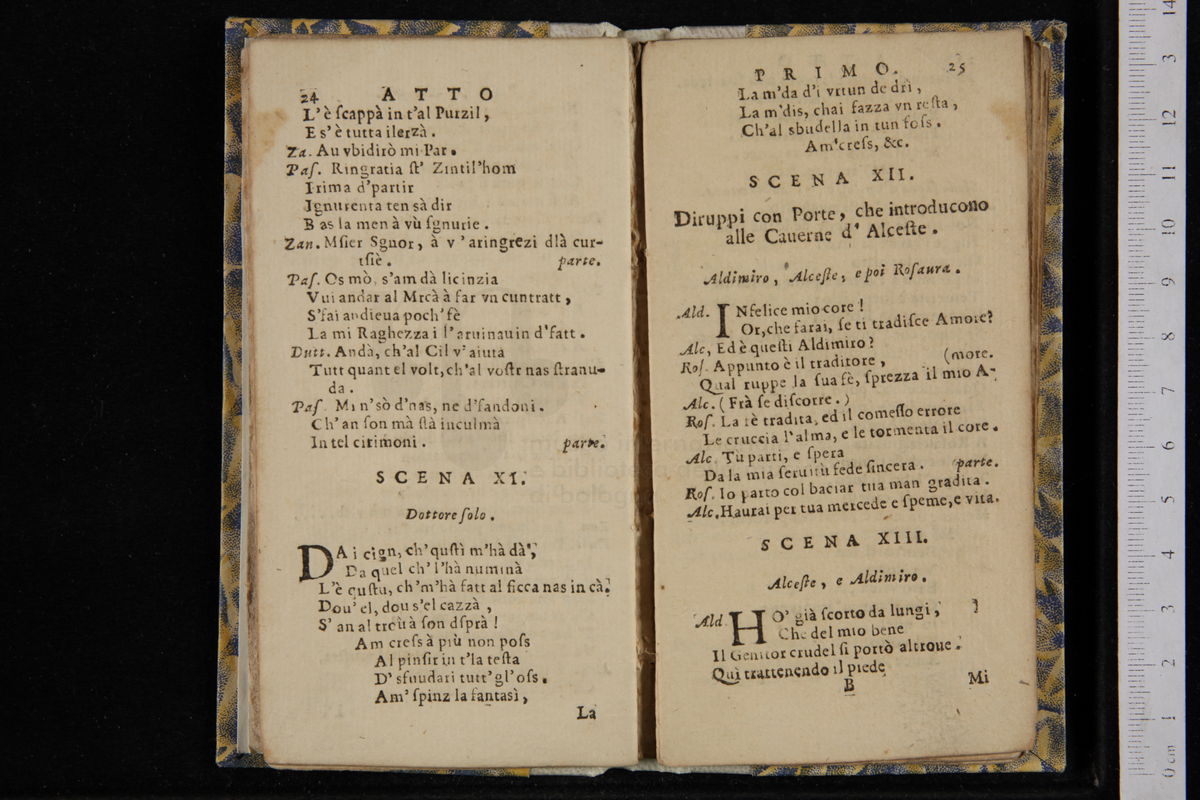 24 A T T O
L'è ſcappà in t'al Purzil,
E s'è tutta ilerzà.
Za. Au vbidirò mi Par.
Paſ. Ringratia ſt' Zintil'hom
Irima d'partir
Ignurenta ten sà dir
Bas la men à vù ſgnurie.
Zan. Mſier Sguor, à v'aringrezi dlà cur-
tſiè. parte.
Paſ. Os mò, s'am dà licinzia
Vui andar al Mrcà à far vn cuntratt,
S'fai andieua poch'fè
La mi Raghezza i l'aruinauin d'fatt.
Dutt. Andà, ch'al Cil v'aiuta
Tutt quant el volt, ch'al voſtr nas ſtranu-
da.
Paſ. Mi n'sò d'nas, ne d'fandoni.
Ch'an ſon mà ſtà inculmà
In tel cirimoni. parte.
SCENA XI.
Dottore ſolo.
DA i cign, ch'quſtì m'hà dà,
Da quel ch'l'hà numinà
L'è quſtu, ch'm'hà fatt al ficca nas in cà.
Dou' el, dou s'el cazzà,
S' an al trouà ſon dſprà!
Am creſs à più non poſs
Al pinſir in t'la teſta
D' sfuudati tutt'gl'oſs.
Am' ſpinz la fantasì,
La
P R I M O. 25
La m'da d'i vrtun de drì,
La m'dis, chai fazza vn reſta,
Ch'al sbudella in tun foſs.
Am'creſs, &c.
SCENA XII.
Diruppi con Porte, che introducono
alle Cauerne d' Alceſte.
Aldimiro, Alceſte, e poi Roſaura.
Ald. INfelice mio core!
Or, che farai, ſe ti tradiſce Amore?
Alc, Ed è queſti Aldimiro?
Roſ. Appunto è il traditore, (more.
Qual ruppe la ſua fè, ſprezza il mio A-
Alc. (Frà ſe diſcorre.)
Roſ. La fè tradita, ed il comeſſo errore
Le cruccia l'alma, e le tormenta il core.
Alc. Tù parti, e ſpera
Da la mia ſeruitù fede ſincera. (parte.
Roſ. Io parto col baciar tua man gradita.
Alc. Haurai per tua mercede e ſpeme, e vita.
SCENA XIII.
Alceſte, e Aldimiro.
Ald. HO' già ſcorto da lungi,
Che del mio bene
Il Genitor crudel ſi portò altroue.
Quì trattenendo il piede
B Mi